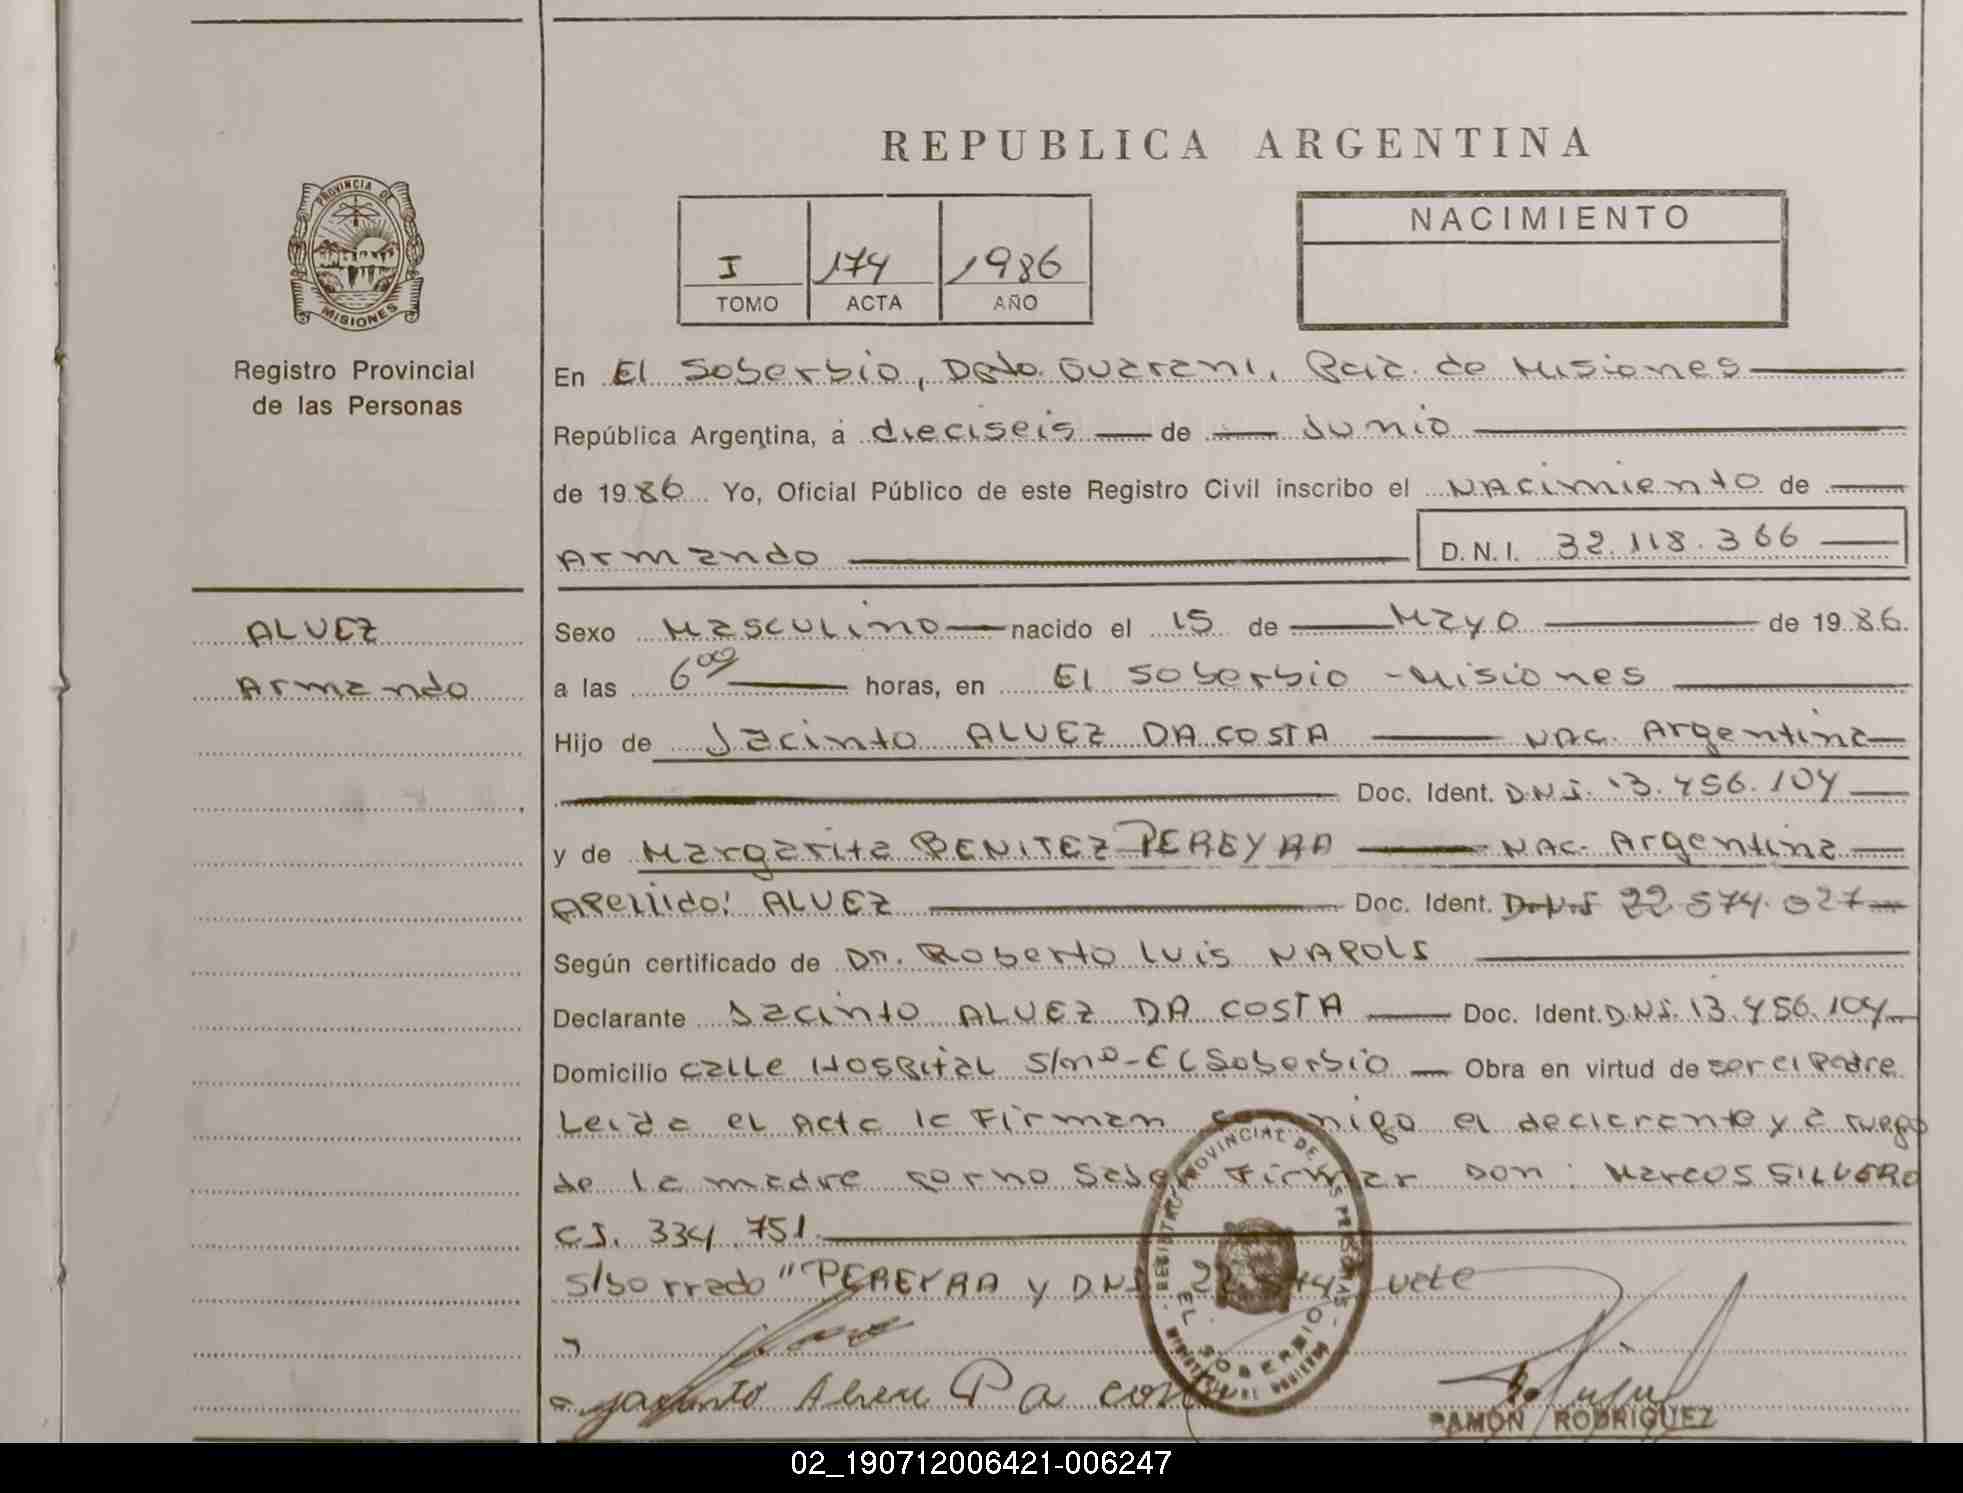 REPUBLICA ARGENTINA
PROVINCIA DE
MISIONES
Registro Provincial
de las Personas
I 174 1986
TOMO ACTA AÑO
NACIMIENTO
En El Soberbio, Dpto. Guarani, Pcia. de Misiones
República Argentina, a dieciseis de Junio
de 1986 Yo, Oficial Público de este Registro Civil inscribo el NACimiento de
Armando D.N.I. 32.118.366
ALVEZ
Armando
Sexo Masculino nacido el 15 de Mayo de 1986.
a las 6 00 horas, en El Soberbio - Misiones
Hijo de Jacinto ALVEZ DA COSTA NAC. Argentina
Doc. Ident. D.N.I. 13.456.104
y de Margarita BENITEZ PEREYRA NAC. Argentina
Apellido: ALVEZ Doc. Ident. D.N.I 22 574.027
Según certificado de Dr. Roberto Luis NAPOLS
Declarante Jacinto ALVEZ DA COSTA Doc. Ident. D.N.I. 13.456.104
Domicilio calle Hospital S/nº - El Soberbio Obra en virtud de ser el Padre
Leida el Acta la Firman conmigo el declarante y a ruego
de la madre por no Saber Firmar Don: Marcos SILVERO
C.I. 334.751
S/borrado "PEREYRA y DNI 22.574 vale
REGISTRO PROVINCIAL DE LAS PERSONAS
EL SOBERBIO
RAMON RODRIGUEZ
02_190712006421-006247